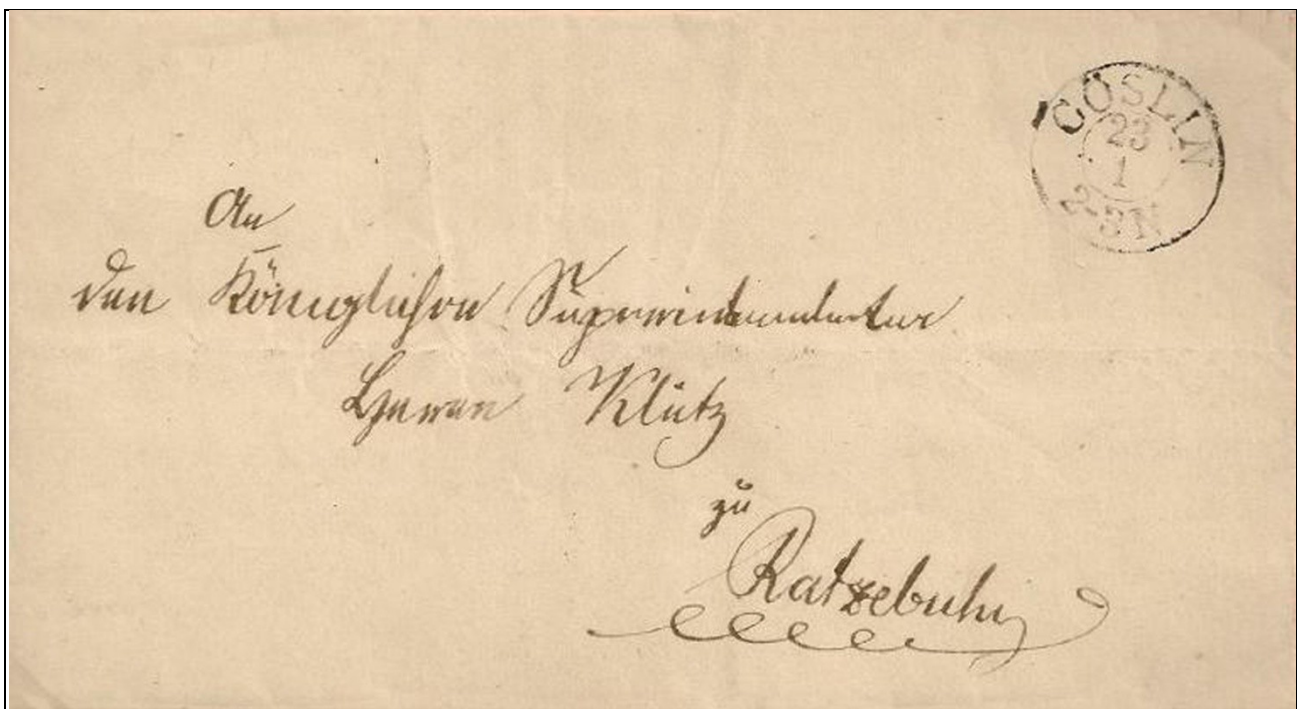 CÖSLIN
23
1
2-3N
An
den Königlichen Superintendenten
Herrn Klütz
zu
Ratzebuhr